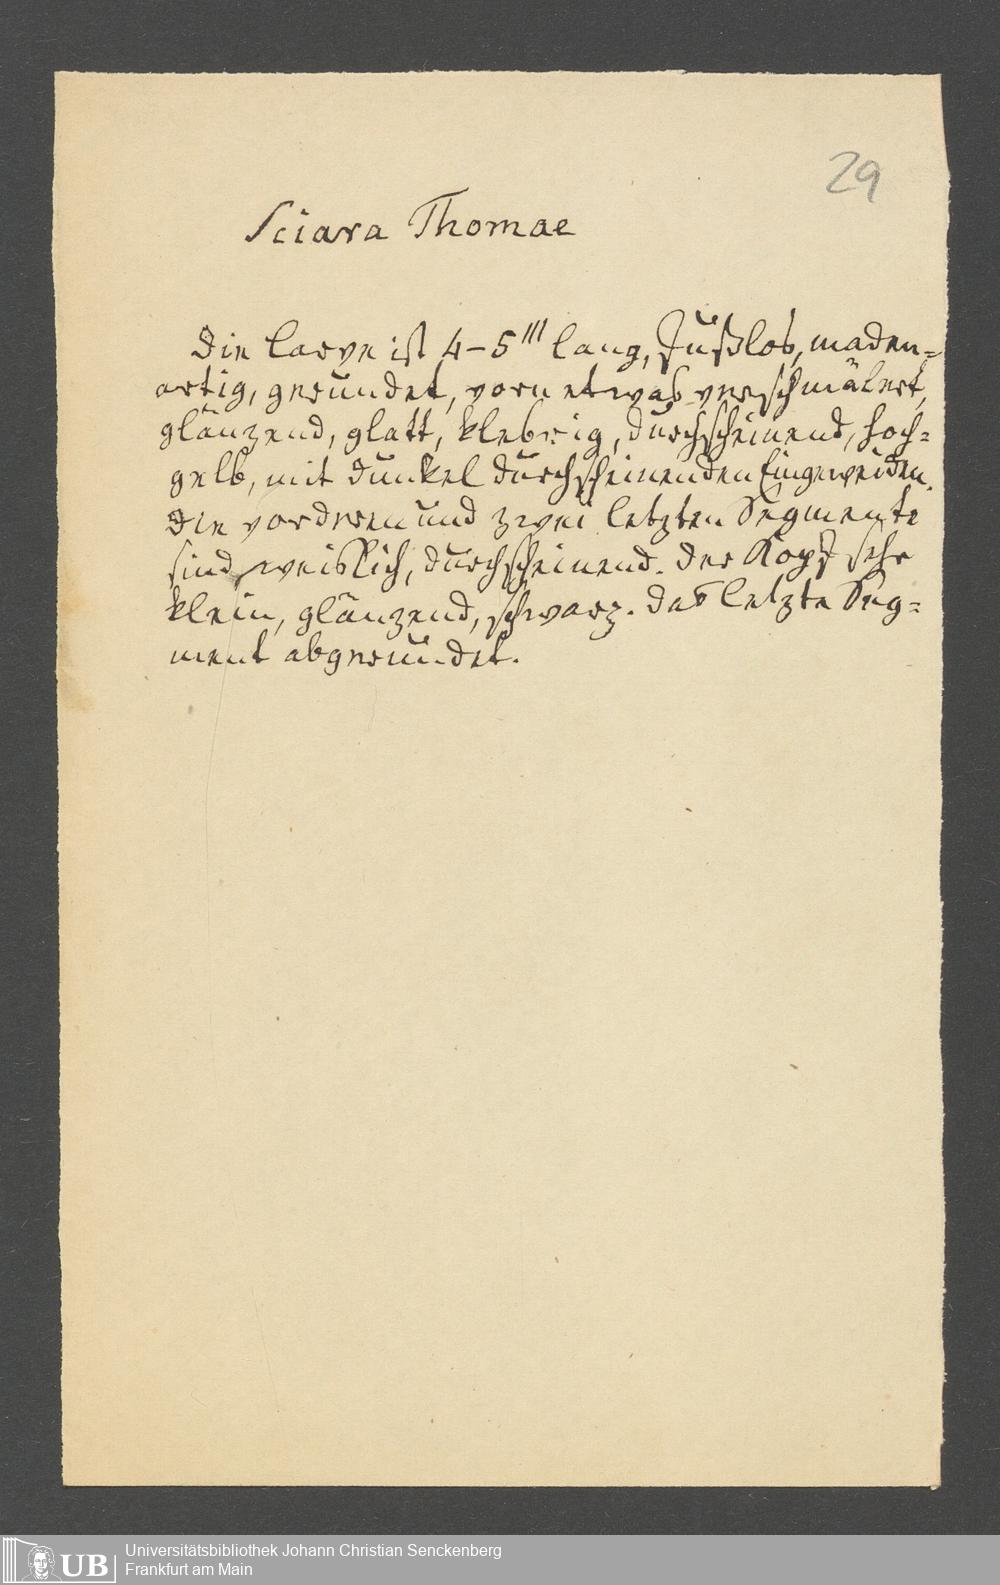 29
Sciara Thomae
Die Larve ist 4–5''' lang, fußlos, maden=
artig, gerundet, vorn etwas verschmälert,
glänzend, glatt, klebrig, durchscheinend, hoch=
gelb, mit dunkel durchscheinenden Eingeweiden.
Die vorderen und zwei letzten Segmente
sind weißlich, durchscheinend. Der Kopf sehr
klein, glänzend, schwarz. Das letzte Seg=
ment abgerundet.
UB
Universitätsbibliothek Johann Christian Senckenberg
Frankfurt am Main